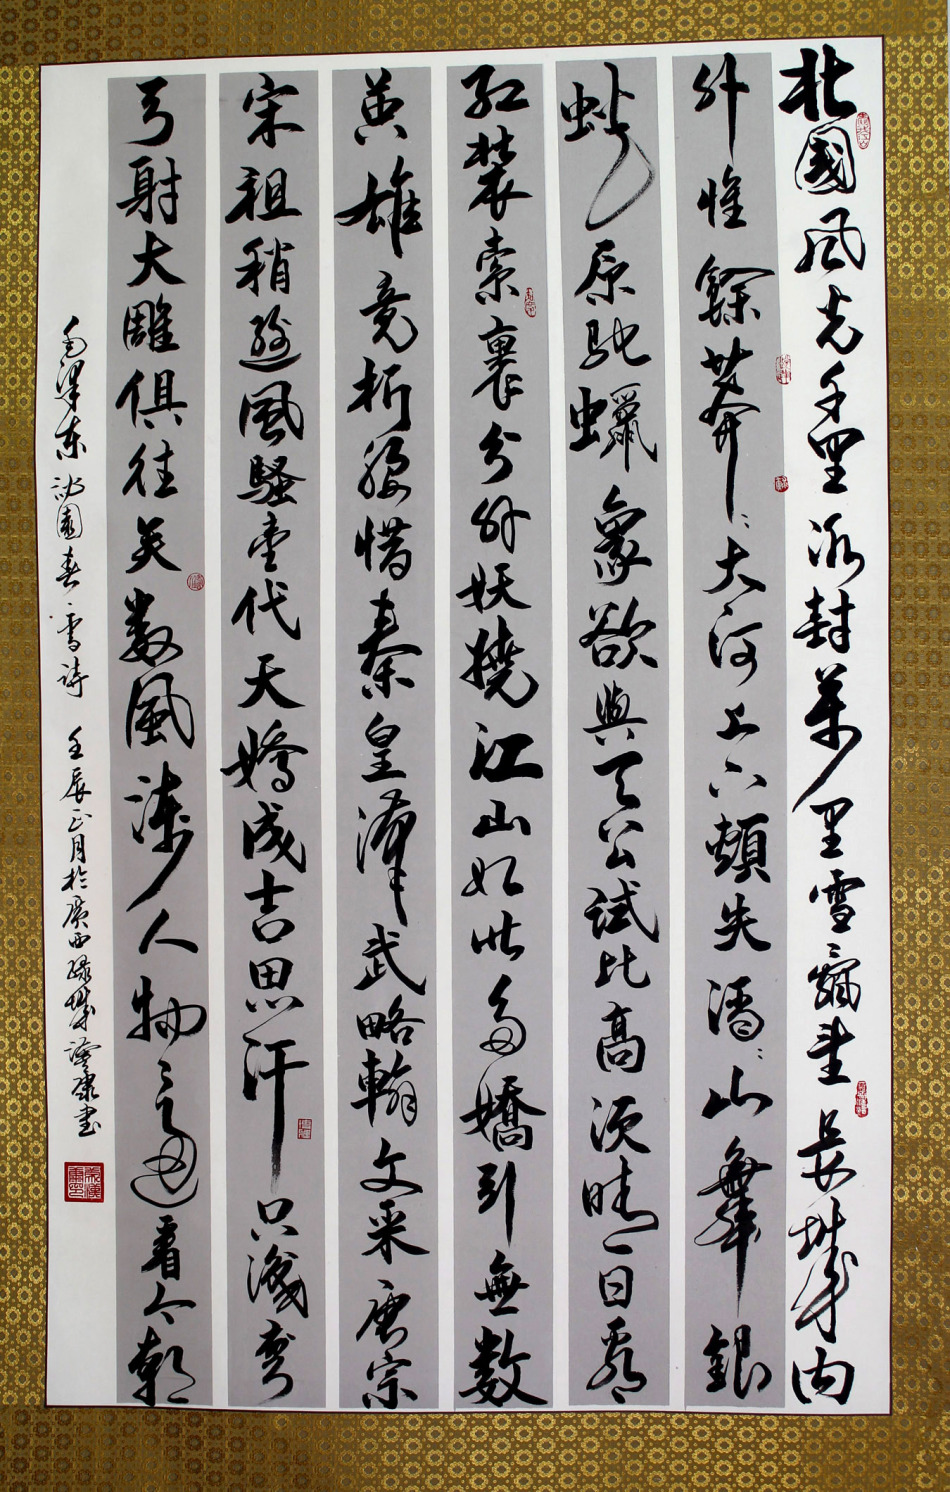 北國风光千里冰封萬里雪飄望長城內
外惟餘莽々大河上下頓失滔々山舞銀
蛇原馳蠟象欲與天公試比高須晴一日看
紅裝素裹分外妖嬈江山如此多嬌引無數
英雄竟折腰惜秦皇漢武略輸文采唐宗
宋祖稍遜風騷壹代天嬌成吉思汗只識彎
弓射大雕俱往矣數風流人物還看今朝
毛澤東沁園春雪詩 壬辰正月於廣西綠城書